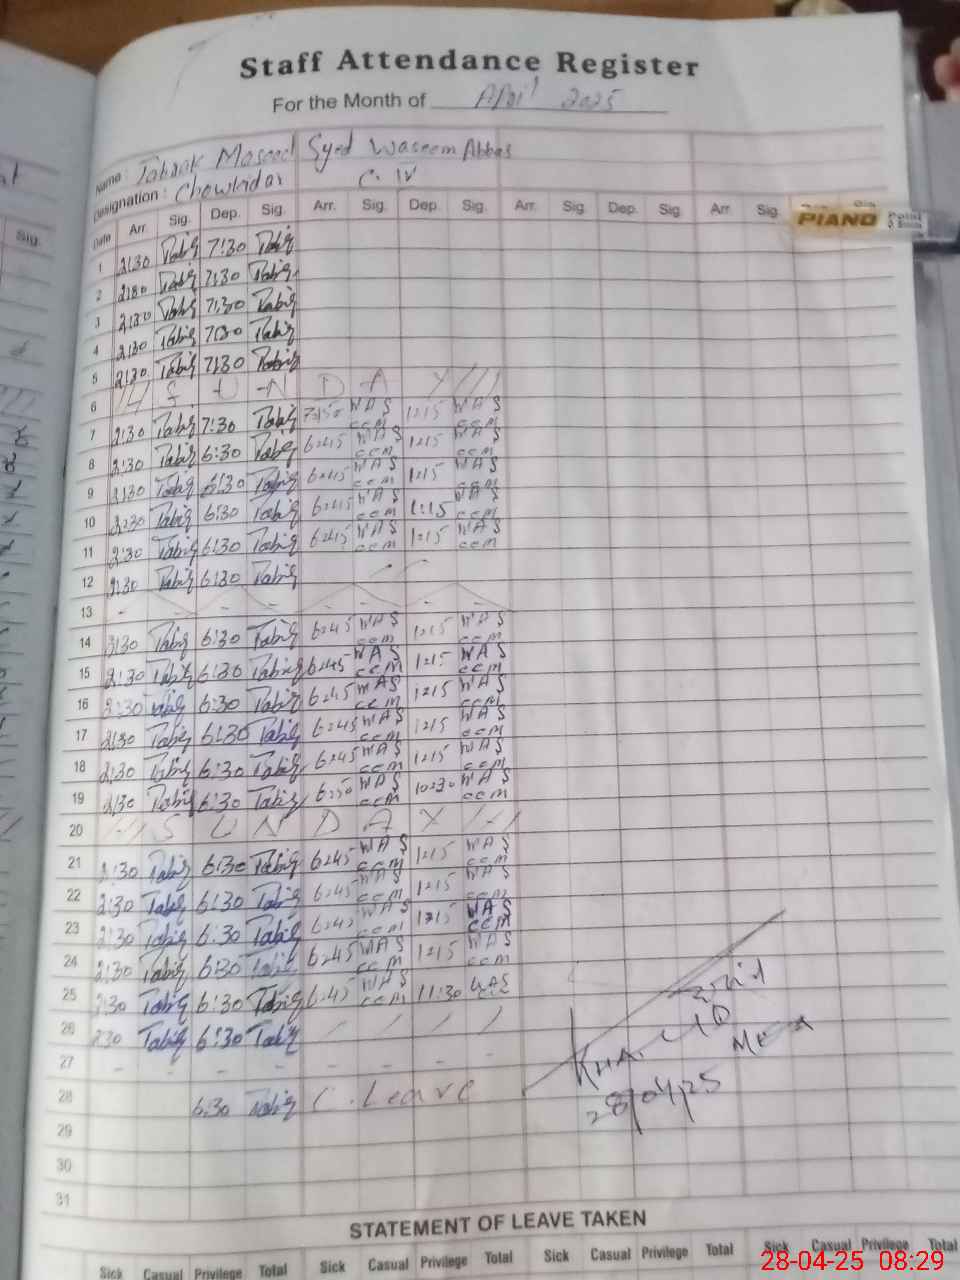 Staff Attendance Register
For the Month of April 2025
Name : Tabark Masood Syed Waseem Abbas
Designation : Chowkidar C. IV
Date Arr. Sig. Dep. Sig. Arr. Sig. Dep. Sig. Arr. Sig. Dep. Sig. Arr. Sig.
PIANO Point
1 2:30 Tabiq 7:30 Tabiq
2 2:30 Tabiq 7:30 Tabiq
3 2:30 Tabiq 7:30 Tabiq
4 2:30 Tabiq 7:30 Tabiq
5 2:30 Tabiq 7:30 Tabiq
6 S U N D A Y
7 2:30 Tabiq 7:30 Tabiq 7:50 WAS ccm 1:15 WAS ccm
8 2:30 Tabiq 6:30 Tabiq 6:45 WAS ccm 1:15 WAS ccm
9 2:30 Tabiq 6:30 Tabiq 6:45 WAS ccm 1:15 WAS ccm
10 2:30 Tabiq 6:30 Tabiq 6:45 WAS ccm 1:15 WAS ccm
11 2:30 Tabiq 6:30 Tabiq 6:45 WAS ccm 1:15 WAS ccm
12 2:30 Tabiq 6:30 Tabiq
13 - - - - - - - -
14 3:30 Tabiq 6:30 Tabiq 6:45 WAS ccm 1:15 WAS ccm
15 2:30 Tabiq 6:30 Tabiq 6:45 WAS ccm 1:15 WAS ccm
16 2:30 Tabiq 6:30 Tabiq 6:45 WAS ccm 1:15 WAS ccm
17 2:30 Tabiq 6:30 Tabiq 6:45 WAS ccm 1:15 WAS ccm
18 2:30 Tabiq 6:30 Tabiq 6:45 WAS ccm 1:15 WAS ccm
19 2:30 Tabiq 6:30 Tabiq 6:50 WAS ccm 10:30 WAS ccm
20 S U N D A Y
21 2:30 Tabiq 6:30 Tabiq 6:45 WAS ccm 1:15 WAS ccm
22 2:30 Tabiq 6:30 Tabiq 6:45 WAS ccm 1:15 WAS ccm
23 2:30 Tabiq 6:30 Tabiq 6:45 WAS ccm 1:15 WAS ccm
24 2:30 Tabiq 6:30 Tabiq 6:45 WAS ccm 1:15 WAS ccm
25 2:30 Tabiq 6:30 Tabiq 6:45 WAS ccm 11:30 WAS
26 2:30 Tabiq 6:30 Tabiq / / / /
27 - - - - - - - -
28 6:30 Tabiq C. Leave
28/04/25
29
30
31
STATEMENT OF LEAVE TAKEN
Sick Casual Privilege Total Sick Casual Privilege Total Sick Casual Privilege Total Sick Casual Privilege Total
28-04-25 08:29